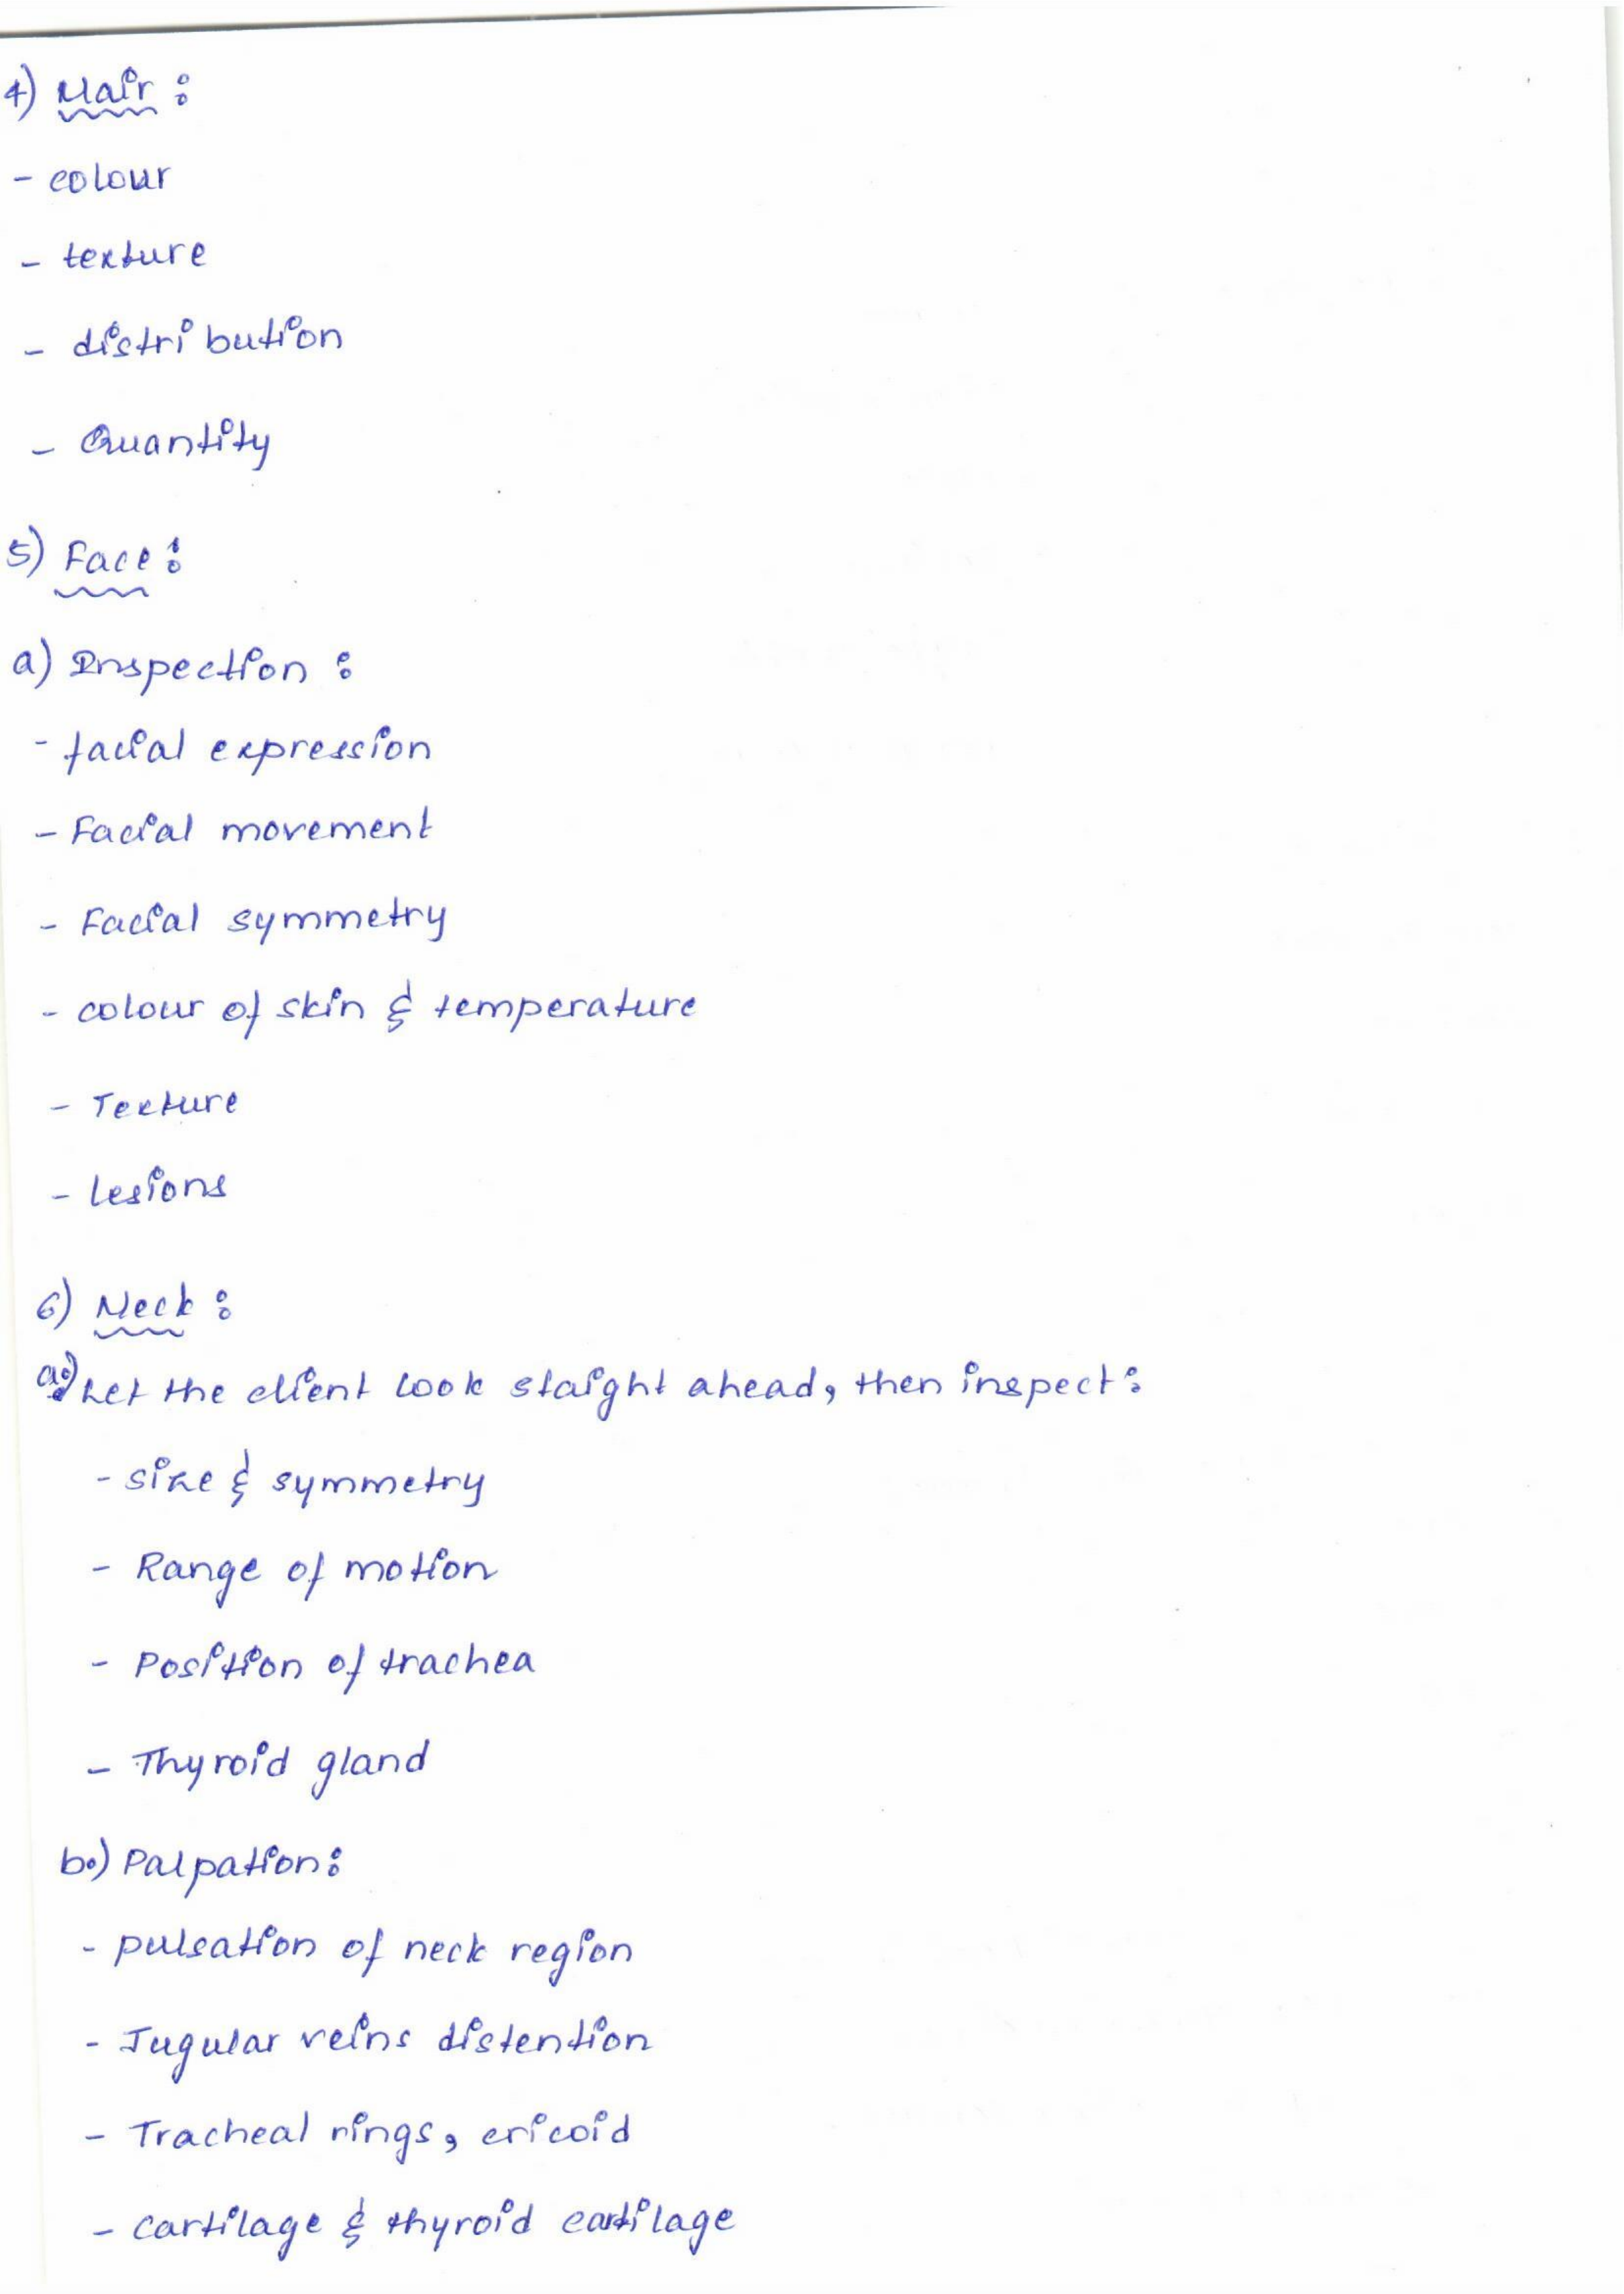 4) Hair :
- colour
- texture
- distribution
- Quantity
5) Face :
a) Inspection :
- facial expression
- Facial movement
- Facial symmetry
- colour of skin & temperature
- Texture
- lesions
6) Neck :
a.) Let the client look staight ahead, then inspect :
- size & symmetry
- Range of motion
- Position of trachea
- Thyroid gland
b.) Palpation :
- pulsation of neck region
- Jugular veins distention
- Tracheal rings, cricoid
- cartilage & thyroid cartilage